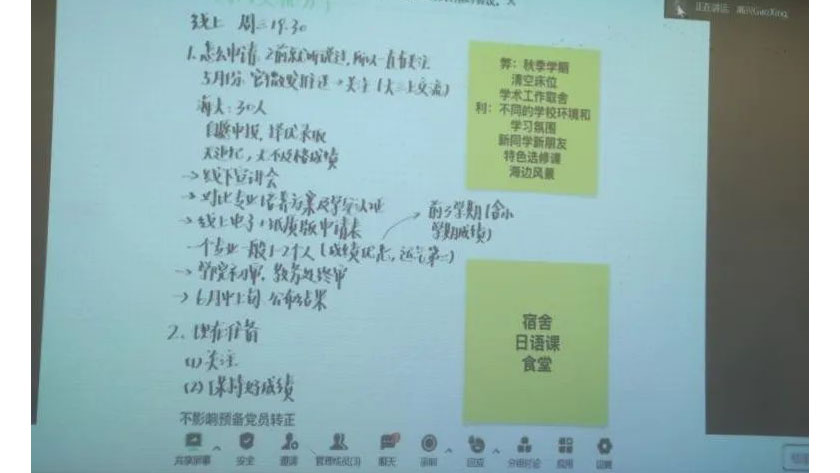 正在讲话: 高兴GaoXing
线上 周三 19:30
1. 怎么申请: 之前就听说过, 所以一直有关注
5月份, 官微发推送 → 关注 (大三上交流)
海大: 30人
自愿申报, 择优录取
无违纪, 无不及格成绩
→ 线下宣讲会
→ 对比专业培养方案及学分认证
→ 线上电子 / 纸质版申请表
前3学期(含小
学期成绩)
一个专业一般1-2个人 (成绩优先, 运气第一)
→ 学院初审, 教务处终审
→ 6月中上旬 公布结果
2. 现在准备
(1) 关注
(2) 保持好成绩
不影响预备党员转正
弊: 秋季学期
清空床位
学术工作取舍
利: 不同的学校环境和
学习氛围
新同学新朋友
特色选修课
海边风景
宿舍
日语课
食堂
共享屏幕 安全 邀请 管理成员(3) 聊天 录制 回应 分组讨论 应用 设置